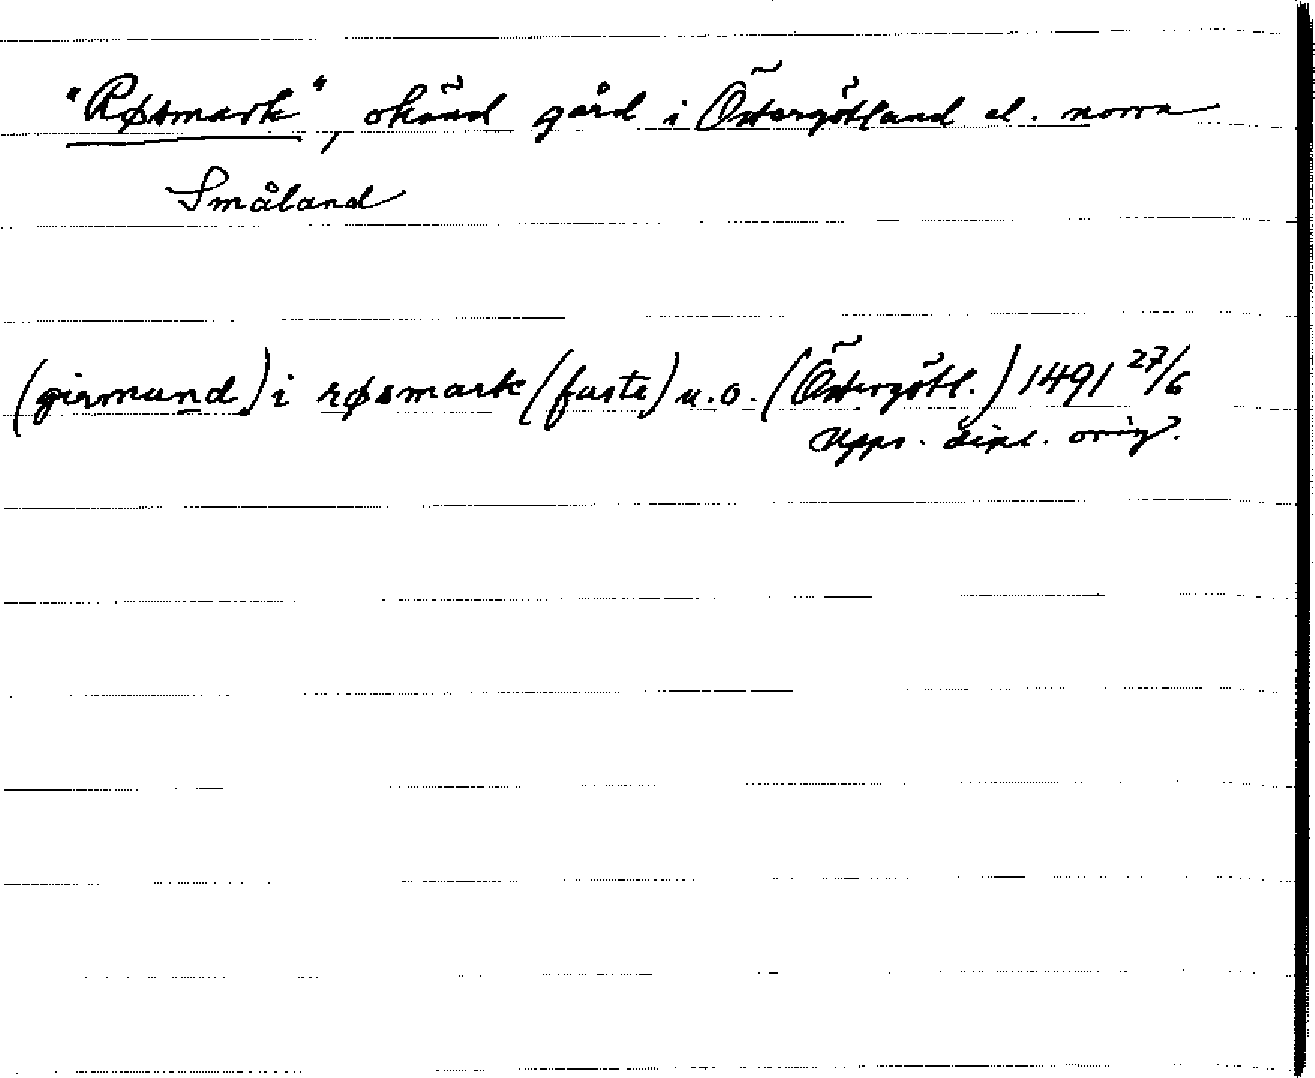 "Røsmark", okänd gård i Östergötland el. norra
Småland
(girmund) i røsmark (faste) u.o. (Östergötl.) 1491 27/6
Upps. dipl. orig.